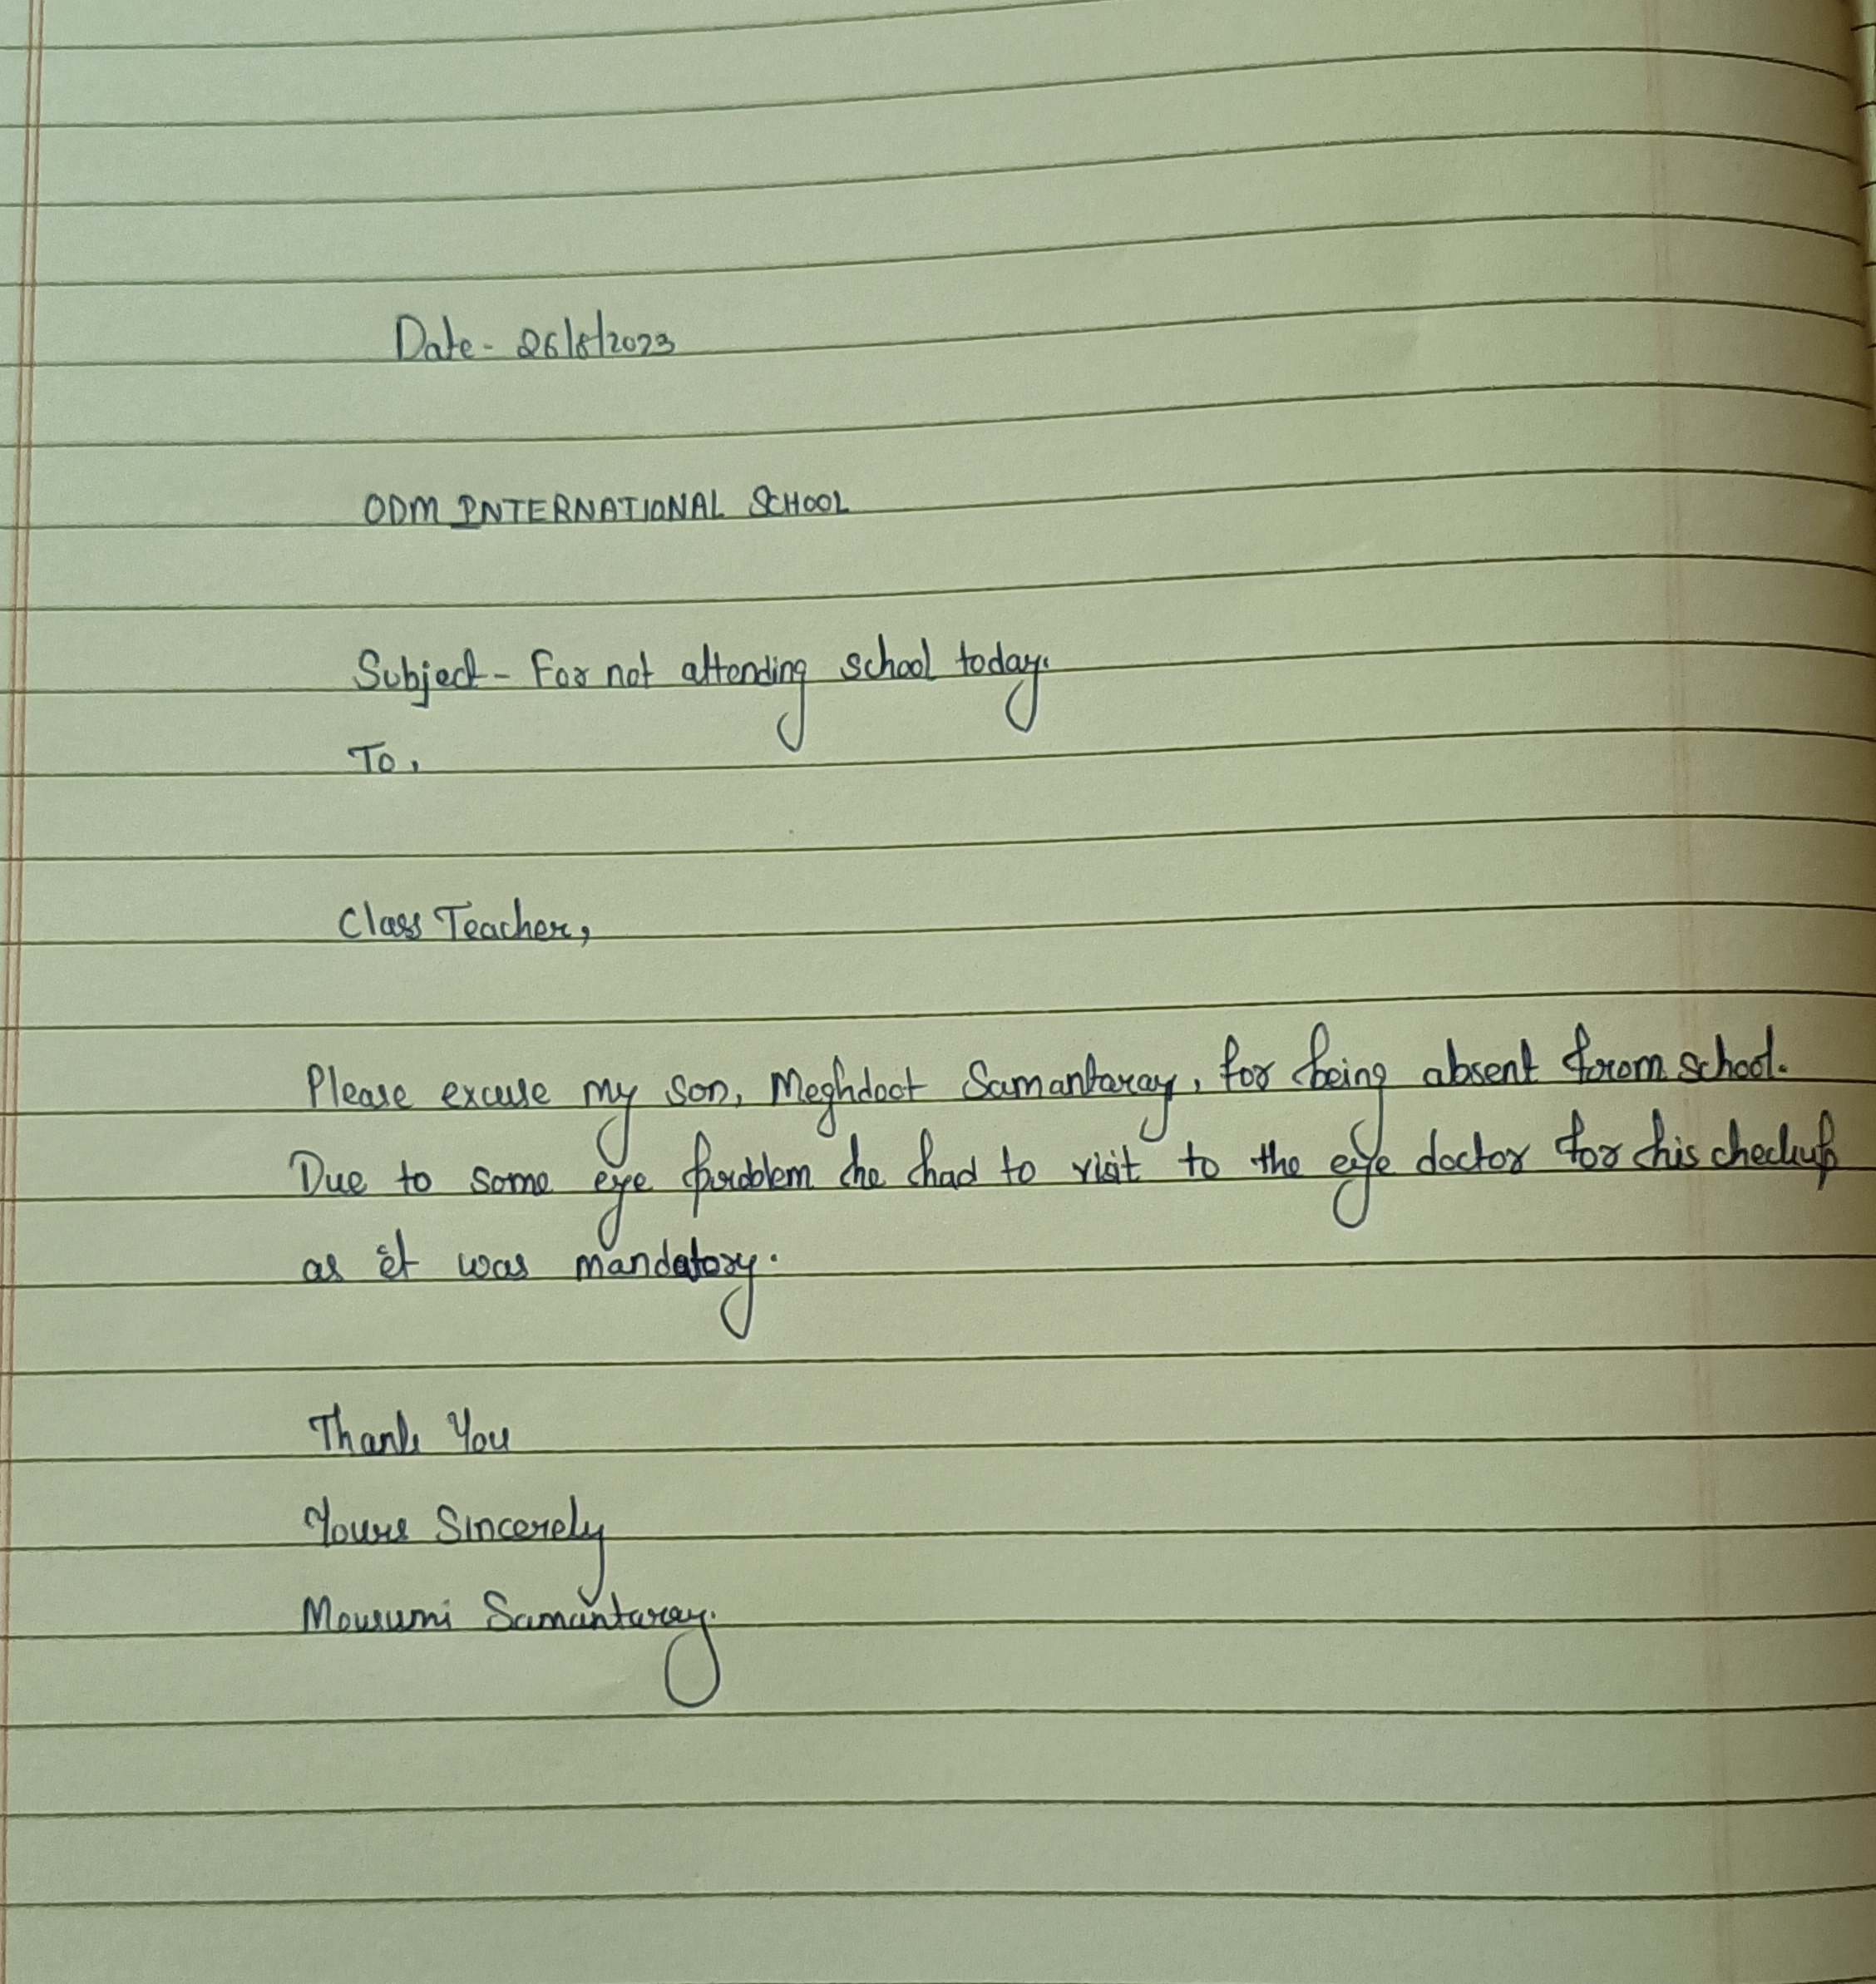 Date - 26/8/2023
ODM INTERNATIONAL SCHOOL
Subject - For not attending school today.
To,
Class Teacher,
Please excuse my son, Meghdoot Samantaray, for being absent from school.
Due to some eye problem he had to visit to the eye doctor for his checkup
as it was mandatory.
Thank You
Yours Sincerely
Mousumi Samantaray.